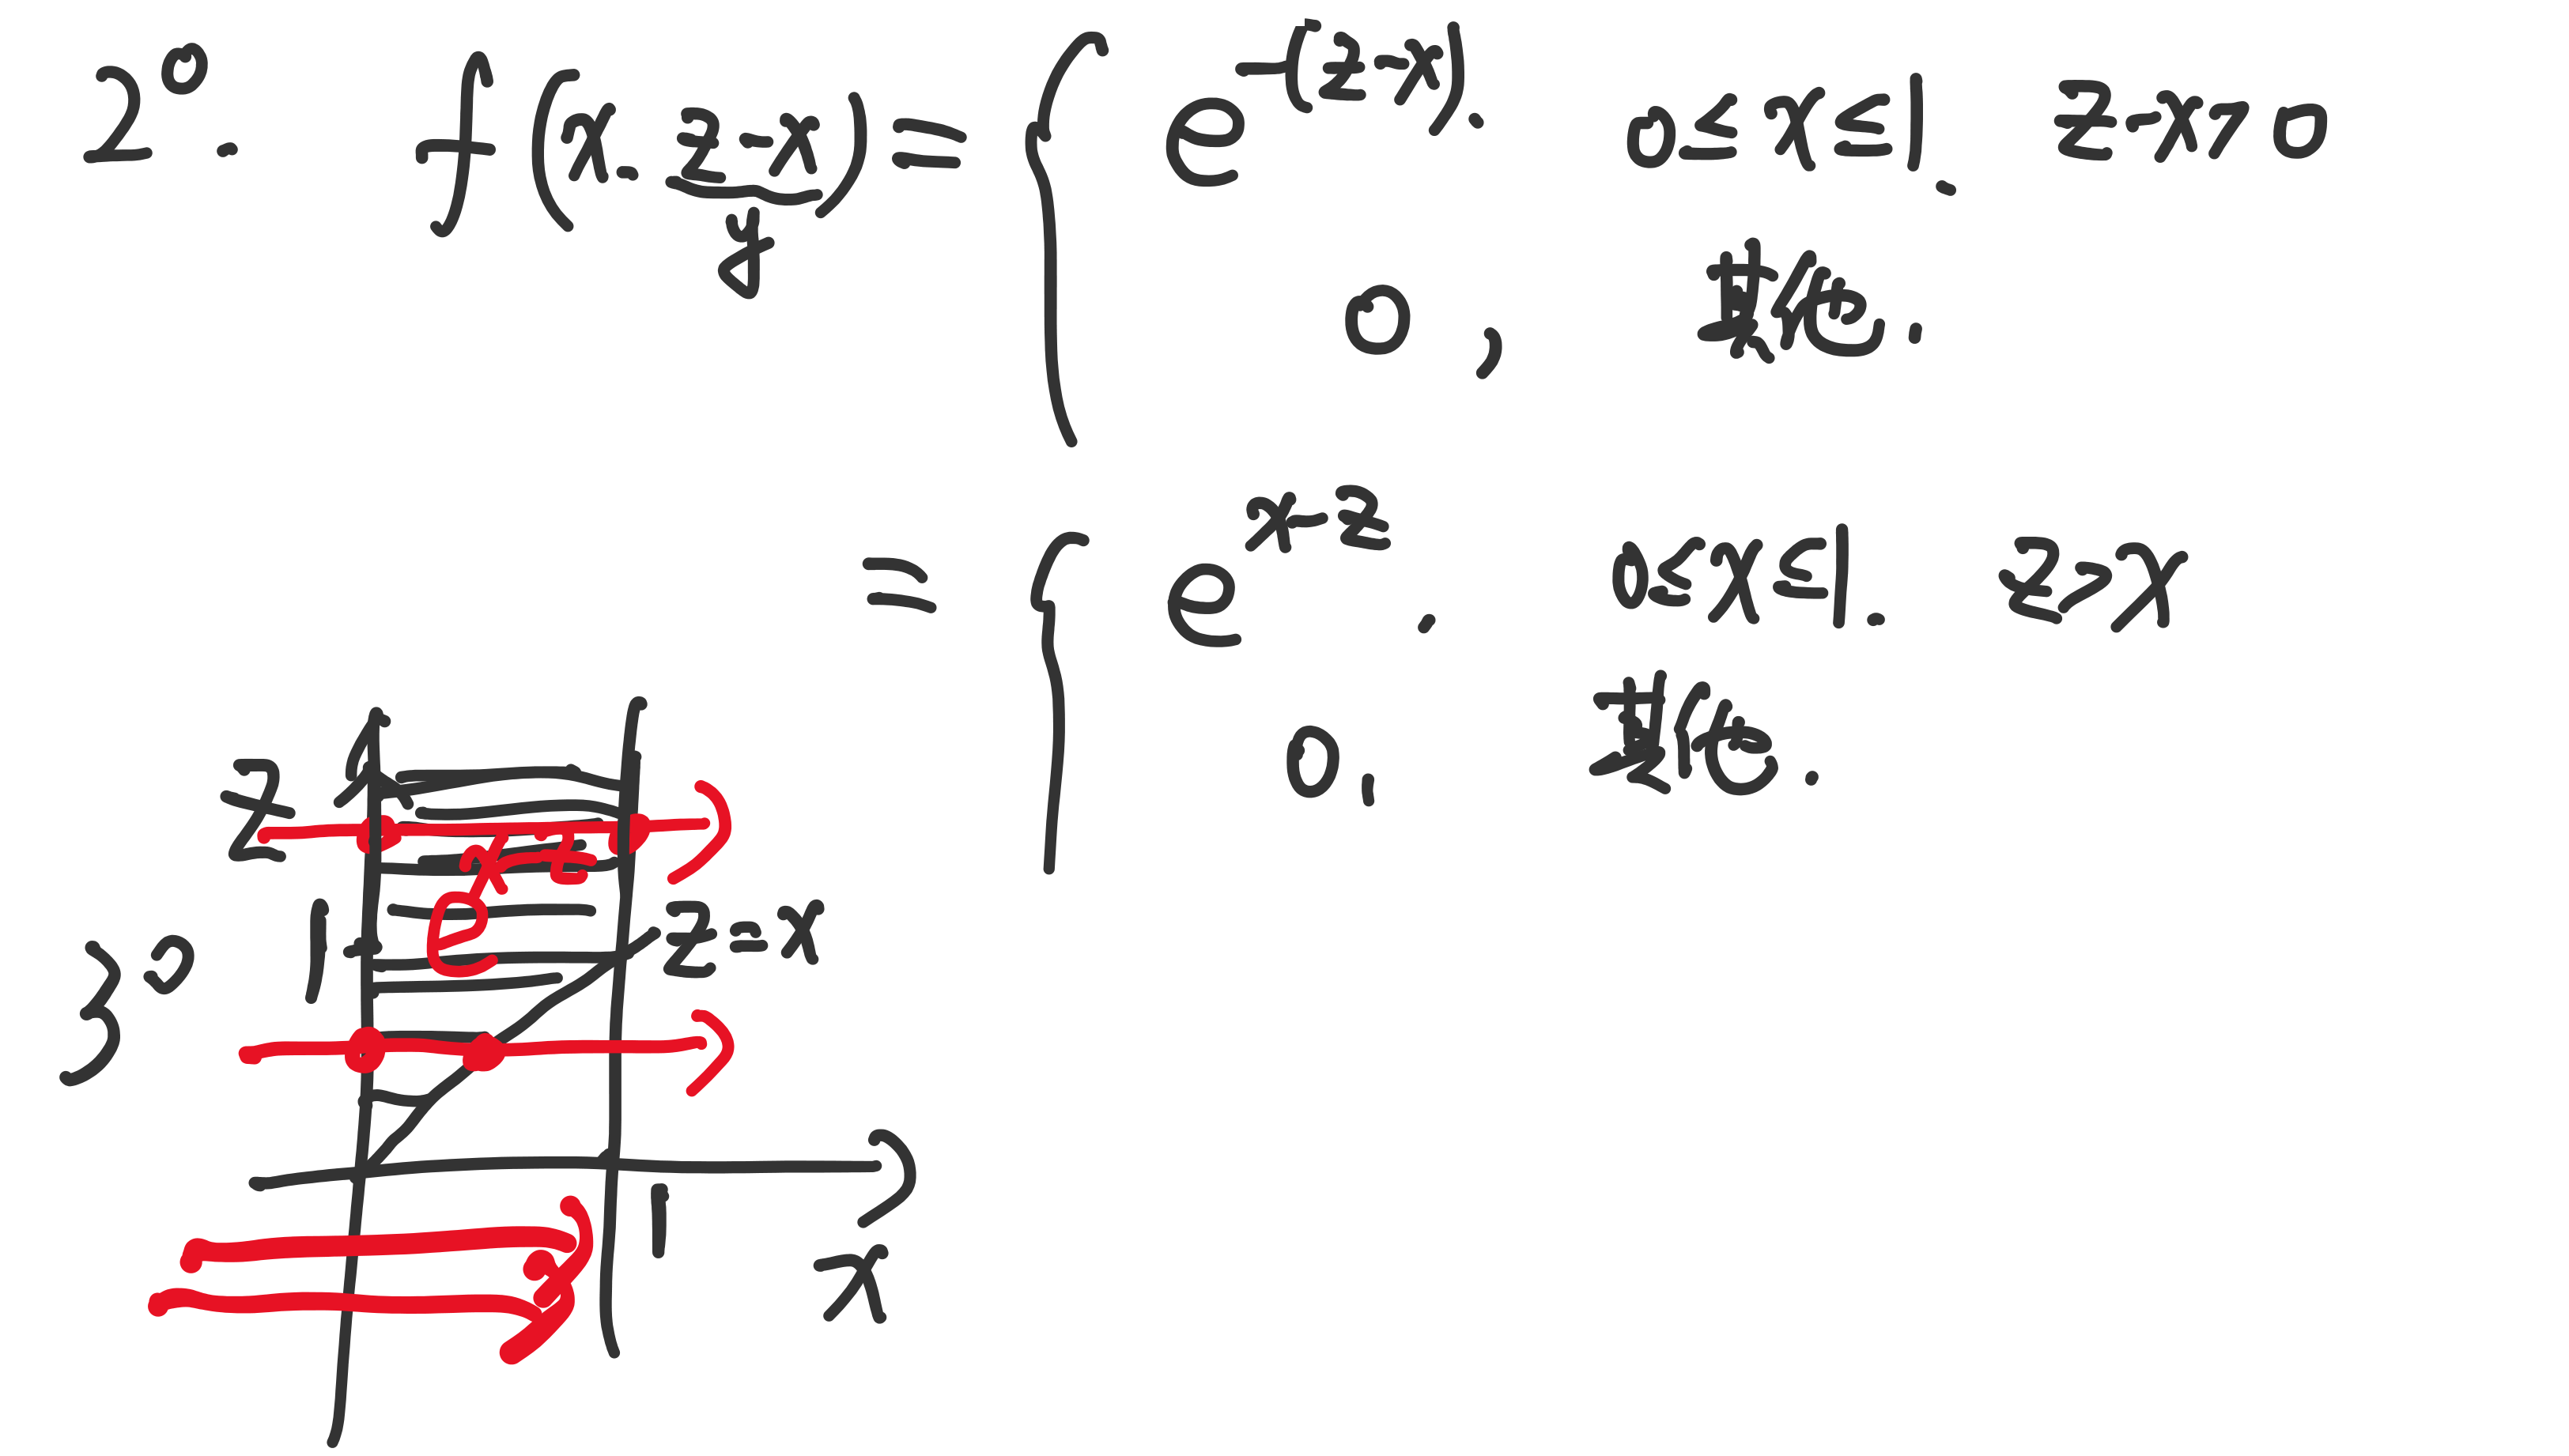 2⁰. f(x. z-x) = { e^{-(z-x)}. 0≤x≤1. z-x>0
y
0, 其他.
= { e^{x-z}. 0≤x≤1. z>x
0, 其他.
z
e^{x-z}
1 z=x
3⁰
1
x